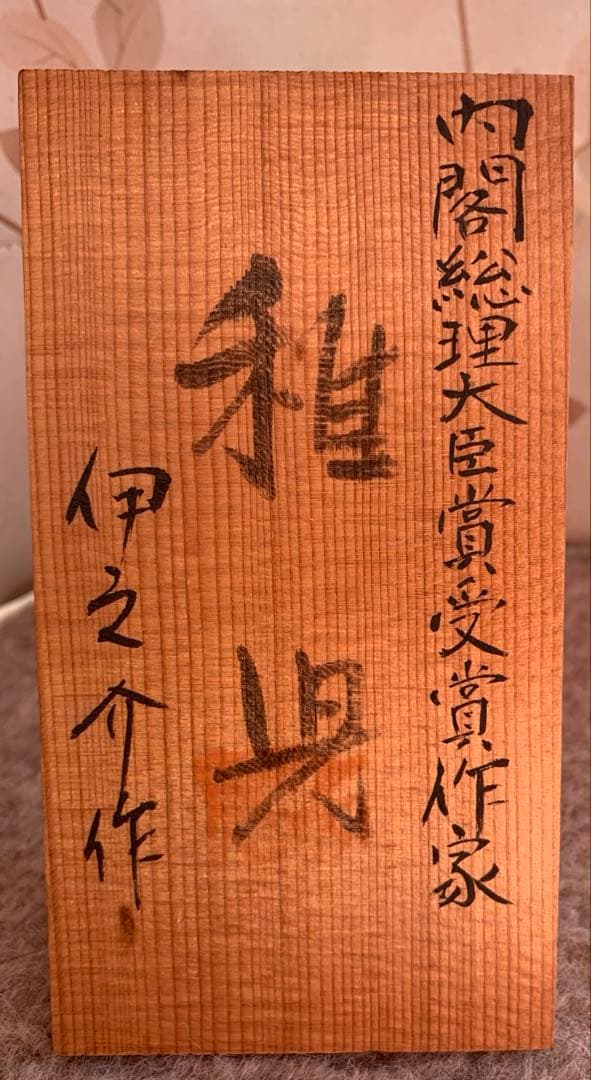 内閣総理大臣賞受賞作家
稚児
伊之介作